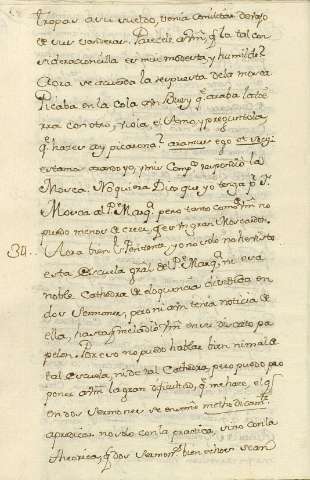 tropas a su sueldo, venia a militar debajo
de sus vanderas. Parecele a Vm, q̃ la tal con
sideracioncilla es mui modesta y humilde?
Aora se acuerda la respuesta de la mosca
Picaba en la cola a un Buey q̃ araba la tie
rra con otro, violo el Amo, y preguntola,
q̃ haces ay picarona? aramus ego et
estamos arando yo, y mis Comp.s respondió la
Mosca. No quiera Dios que yo tenga p.r
Mosca al P.e Marq.z pero tanto como
puedo menos de creer q̃ es un gran Moscardon.
34.. Aora bien el no solo no he visto
esta escuela gral del P.e Marq.z, ni esa
noble Cathedra de eloquencia dividida en
dos Sermones, pero ni aun tenia noticia de
ella, hasta q̃ me la dio Vm en su discreto pa
pelon. Por eso no puedo hablar bien ni mal de
tal escuela, ni de tal Cathedra, pero puedo pro
poner a Vm la gran dificultad, q̃ me hace, el q̃
en dos Sermones se enseñe methodicam.te
a predicar no solo con la practica, sino con la
theorica, q̃ dos Sermon.s bien sean